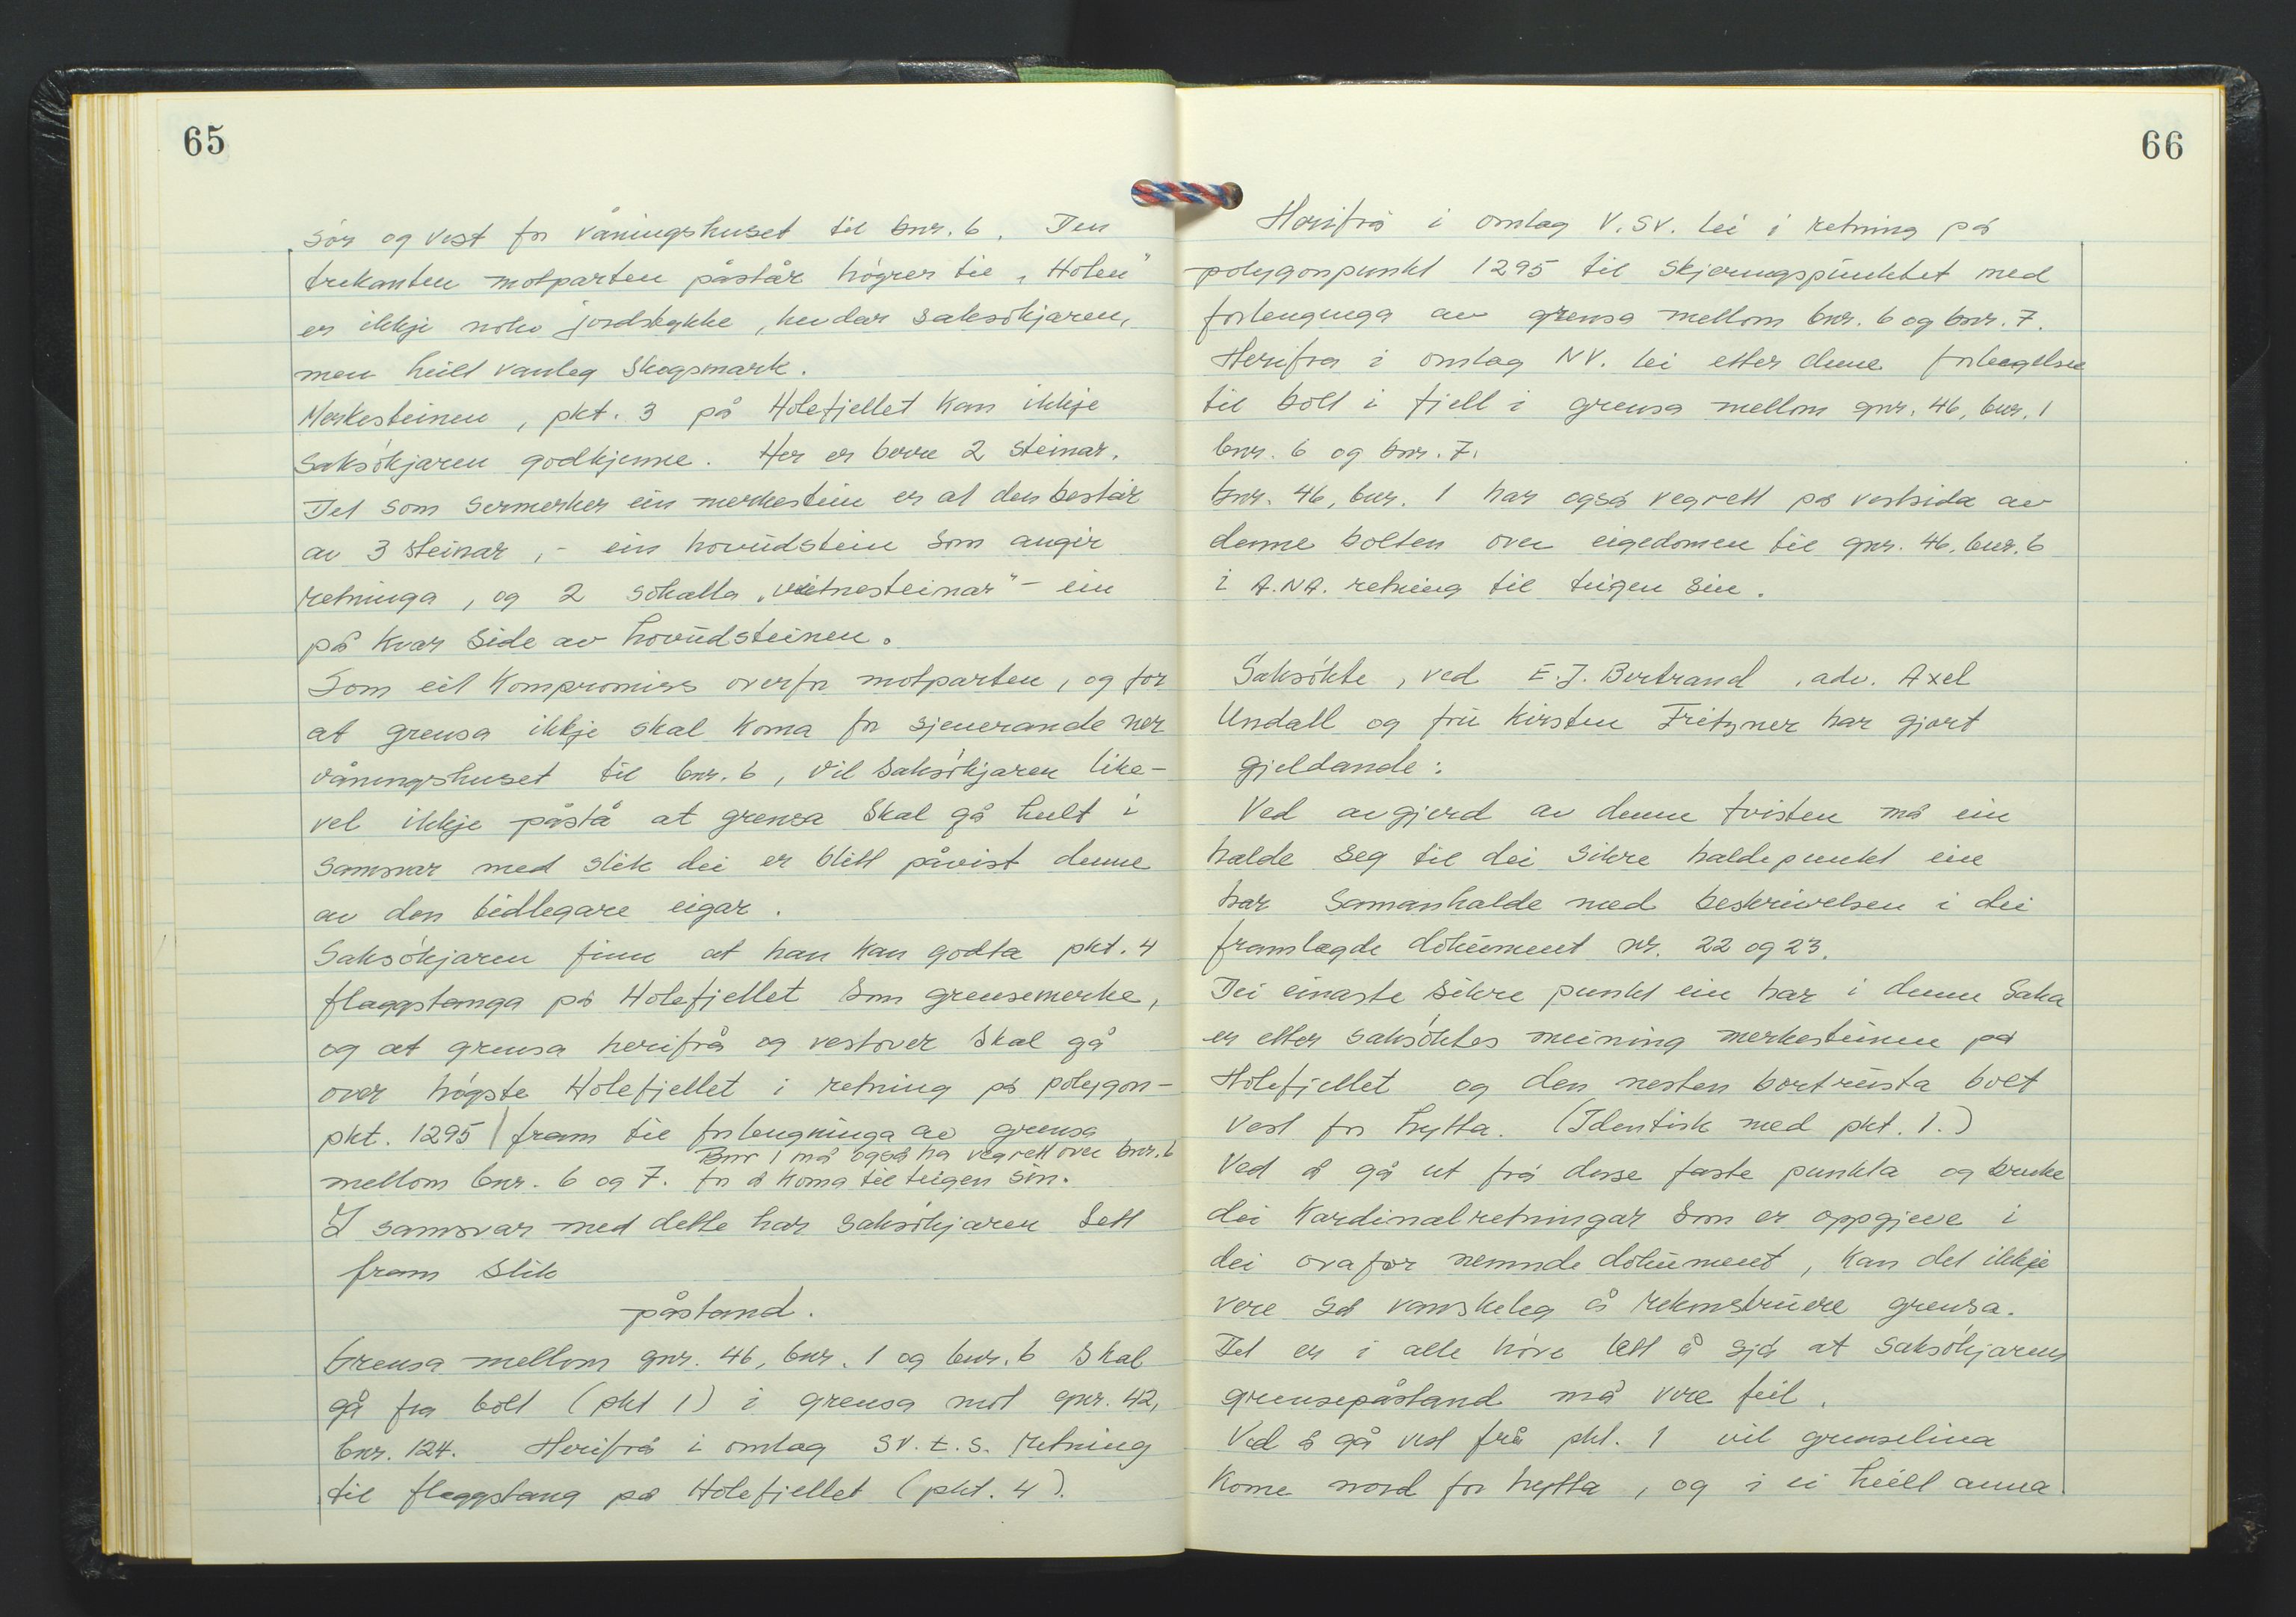 65
sør og vest for våningshuset til bnr. 6. Den
trekanten motparten påstår høgrer til „Holen"
er ikkje noko jordstykke, hevdar saksøkjaren,
men heilt vanleg skogsmark.
Merkesteinen, pkt. 3 på Holefjellet kan ikkje
saksøkjaren godkjenne. Her er berre 2 steinar.
Det som sermerker ein merkestein er at den består
av 3 steinar, - ein hovudstein som angir
retninga, og 2 såkalla „vitnesteinar" - ein
på kvar side av hovudsteinen.
Som eit kompromiss overfor motparten, og for
at grensa ikkje skal koma for sjenerande ner
våningshuset til bnr. 6, vil saksøkjaren like-
vel ikkje påstå at grensa skal gå heilt i
samsvar med slik dei er blitt påvist denne
av den tidlegare eigar.
Saksøkjaren finn at han kan godta pkt. 4
flaggstanga på Holefjellet som grensemerke,
og at grensa herifrå og vestover skal gå
over høgste Holefjellet i retning på polygon-
pkt. 1295 fram til forlengninga av grensa
mellom bnr. 6 og 7. Bnr 1 må også ha vegrett over bnr. 6
for å koma til teigen sin.
I samsvar med dette har saksøkjaren sett
fram slik
påstand.
Grensa mellom gnr. 46, bnr. 1 og bnr. 6 skal
gå fra bolt (pkt 1) i grensa mot gnr. 42,
bnr. 124. Herifrå i omlag SV. t. S. retning
til flaggstang på Holefjellet (pkt. 4).
66
Herifrå i omlag V. SV. lei i retning på
polygonpunkt 1295 til skjeringspunktet med
forlenginga av grensa mellom bnr. 6 og bnr. 7.
Herifra i omlag NV. lei etter denne forlengelsen
til bolt i fjell i grensa mellom gnr. 46, bnr. 1
bnr. 6 og bnr. 7.
Gnr. 46, bnr. 1 har også vegrett på vestsida av
denne bolten over eigedomen til gnr. 46, bnr. 6
i A.NA. retning til teigen sin.
Saksøkte, ved E. J. Bertrand, adv. Axel
Undall og fru Kirsten Fritzner har gjort
gjeldande:
Ved avgjerd av denne tvisten må ein
halde seg til dei sikre haldepunkt ein
har samanhalde med beskrivelsen i dei
framlagde dokument nr. 22 og 23.
Dei einaste sikre punkt ein har i denne saka
er etter saksøktes meining merkesteinen på
Holefjellet og den nesten bortrusta bolt
vest for hytta. (Identisk med pkt. 1.)
Ved å gå ut frå desse faste punkta og bruke
dei kardinalretningar som er oppgjeve i
dei ovafor nemnde dokument, kan det ikkje
vere så vanskeleg å rekonstruere grensa.
Det er i alle høve lett å sjå at saksøkjarens
grensepåstand må vere feil.
Ved å gå vest frå pkt. 1 vil grenselina
kome nord for hytta, og i ei heilt anna